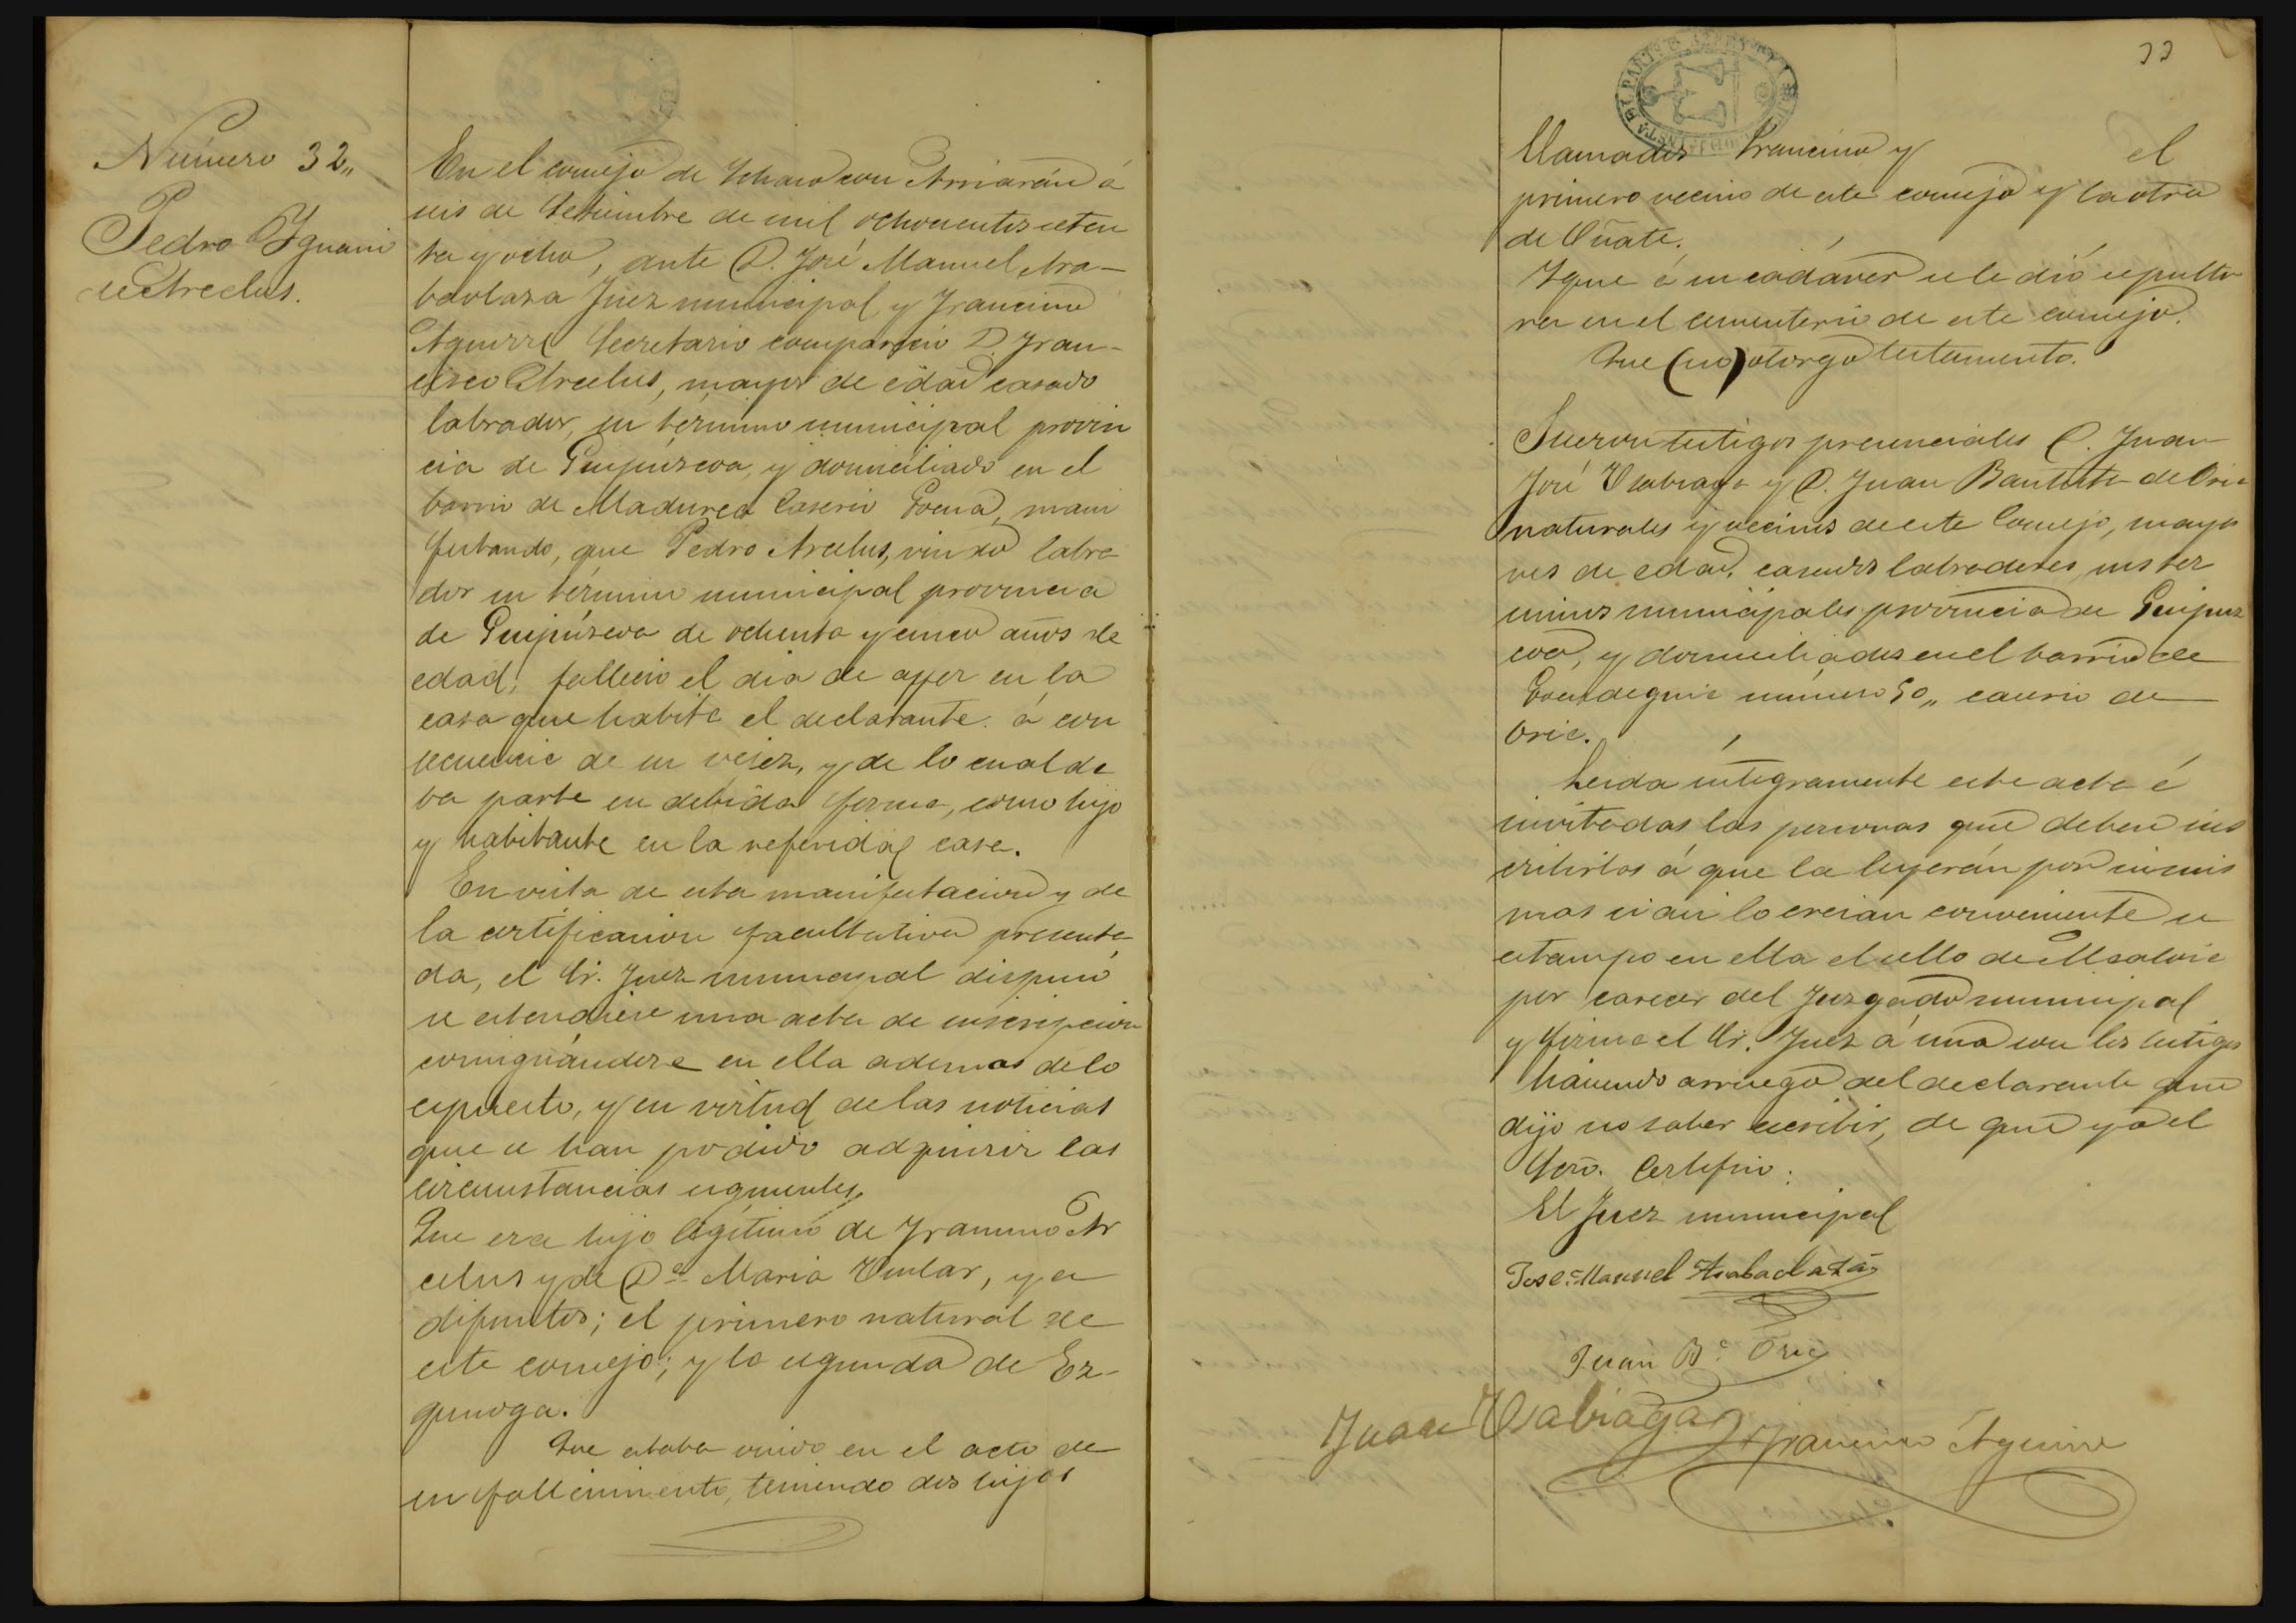 Número 32„
Pedro Ygnacio
de Arcelus.
En el concejo de Ichaso con Arriarán á
seis de Setiembre de mil ochocientos seten
ta y ocho, ante D. José Manuel Ara-
baolaza Juez municipal, y Francisco
Aguirre Secretario compareció D. Fran-
cisco Arcelus, mayor de edad casado
labrador, su término municipal provin
cia de Guipúzcoa, y domiciliado en el
barrio de Madurea Caserio Goena, mani
festando, que Pedro Arcelus, viudo labra
dor su término municipal provincia
de Guipúzcoa de ochenta y cinco años de
edad, falleció el dia de ayer en la
casa que habita el declarante á con
secuencia de su vejez, y de lo cual da
ba parte en debida forma, como hijo
y habitante en la referida casa.
En vista de esta manifestacion y de
la certificacion facultativa presenta
da, el Sr. Juez municipal dispuso
se estendiese una acta de inscripcion
consignándose en ella ademas de lo
espuesto, y en virtud de las noticias
que se han podido adquirir las
circunstancias siguientes,
Que era hijo legítimo de Francisco Ar
celus y de Dª María, ya
difuntos; el primero natural de
este concejo; y la segunda de Ez-
quioga.
Que estaba viudo en el acto de
su fallecimiento, teniendo dos hijos
33
llamados Francisco y el
primero vecino de este concejo y la otra
de Oñate.
Y que á su cadáver se le dió sepultu
ra en el cementerio de este concejo.
Que (no) otorgó testamento.
Fueron testigos presenciales D. Juan
José Usabiaga y D. Juan Bautista de Oria
naturales y vecinos de este Concejo, mayo
res de edad, casados labradores, sus tér
minos municipales provincia de Guipuz
coa, y domiciliados en el barrio de
número 50„ caserio de
Oria.
Leida íntegramente este acta é
invitadas las personas que deben sus
cribirlas á que la leyerán por si mis
mas si asi lo creian conveniente se
estampó en ella el sello de Alcaldia
por carecer del Juzgado municipal
y firma el Sr. Juez á una con los testigos
haciendo arruego del declarante que
dijo no saber escribir, de que yo el
Srio. Certifico.
El Juez municipal
Jose Manuel Arabaolaza
Juan Bª Oria
Juan Usabiaga
Francisco Aguirre